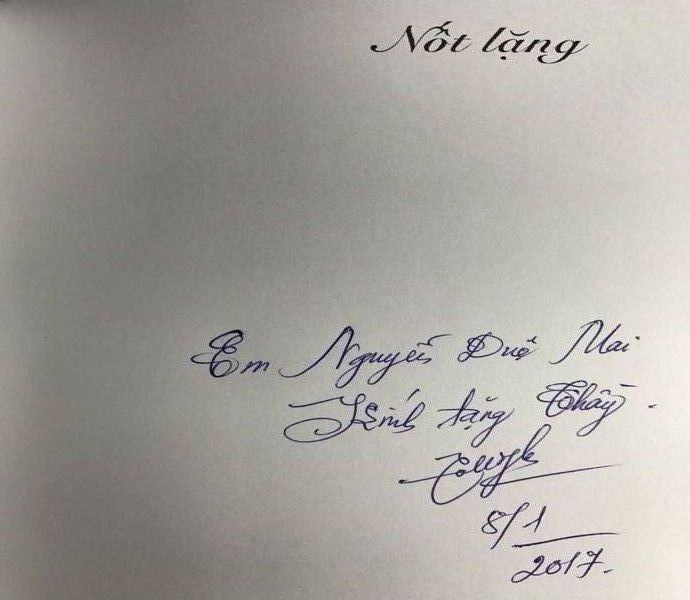 Nốt lặng
Em Nguyễn Duệ Mai
Kính tặng Thầy.
8/1
2017.